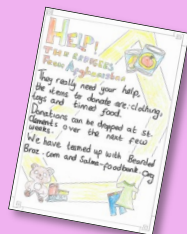 HELP!
THE REFUGEES
From Afghanistan
They really need your help,
the items to donate are: clothing,
toys and tinned food.
Donations can be dropped at St.
Clements over the next few
weeks.
We have teamed up with Bearded
Broz.com and Salma-foodbank.org